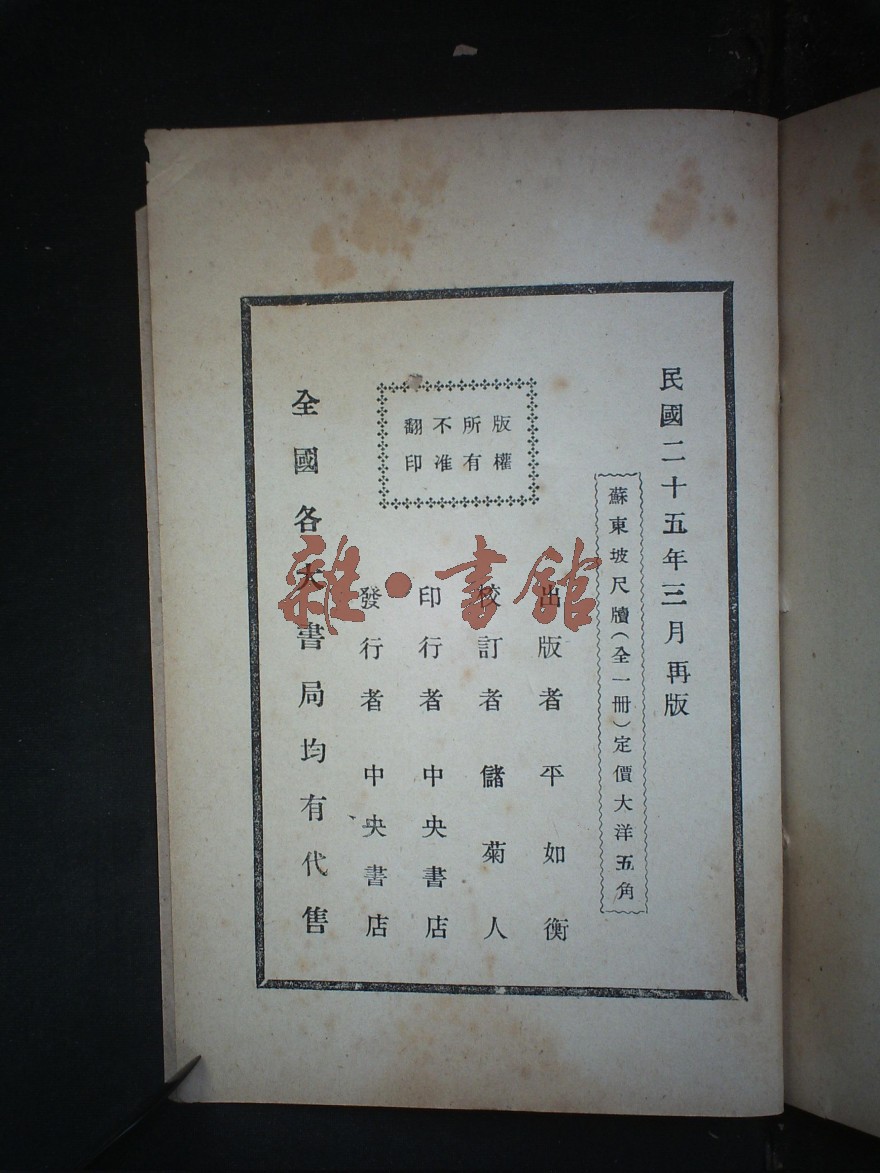 民國二十五年三月再版
蘇東坡尺牘(全一册)定價大洋五角
版權
所有
不准
翻印
出版者 平如衡
校訂者 儲菊人
印行者 中央書店
發行者 中央書店
全國各大書局均有代售
雜·書館